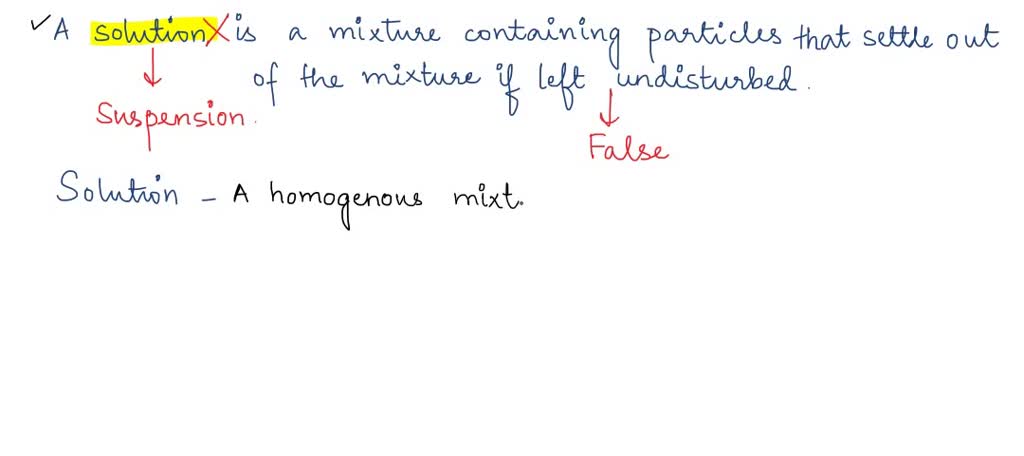 ✓A solution X is a mixture containing particles that settle out
of the mixture if left undisturbed.
Suspension.
False
Solution - A homogenous mixt.